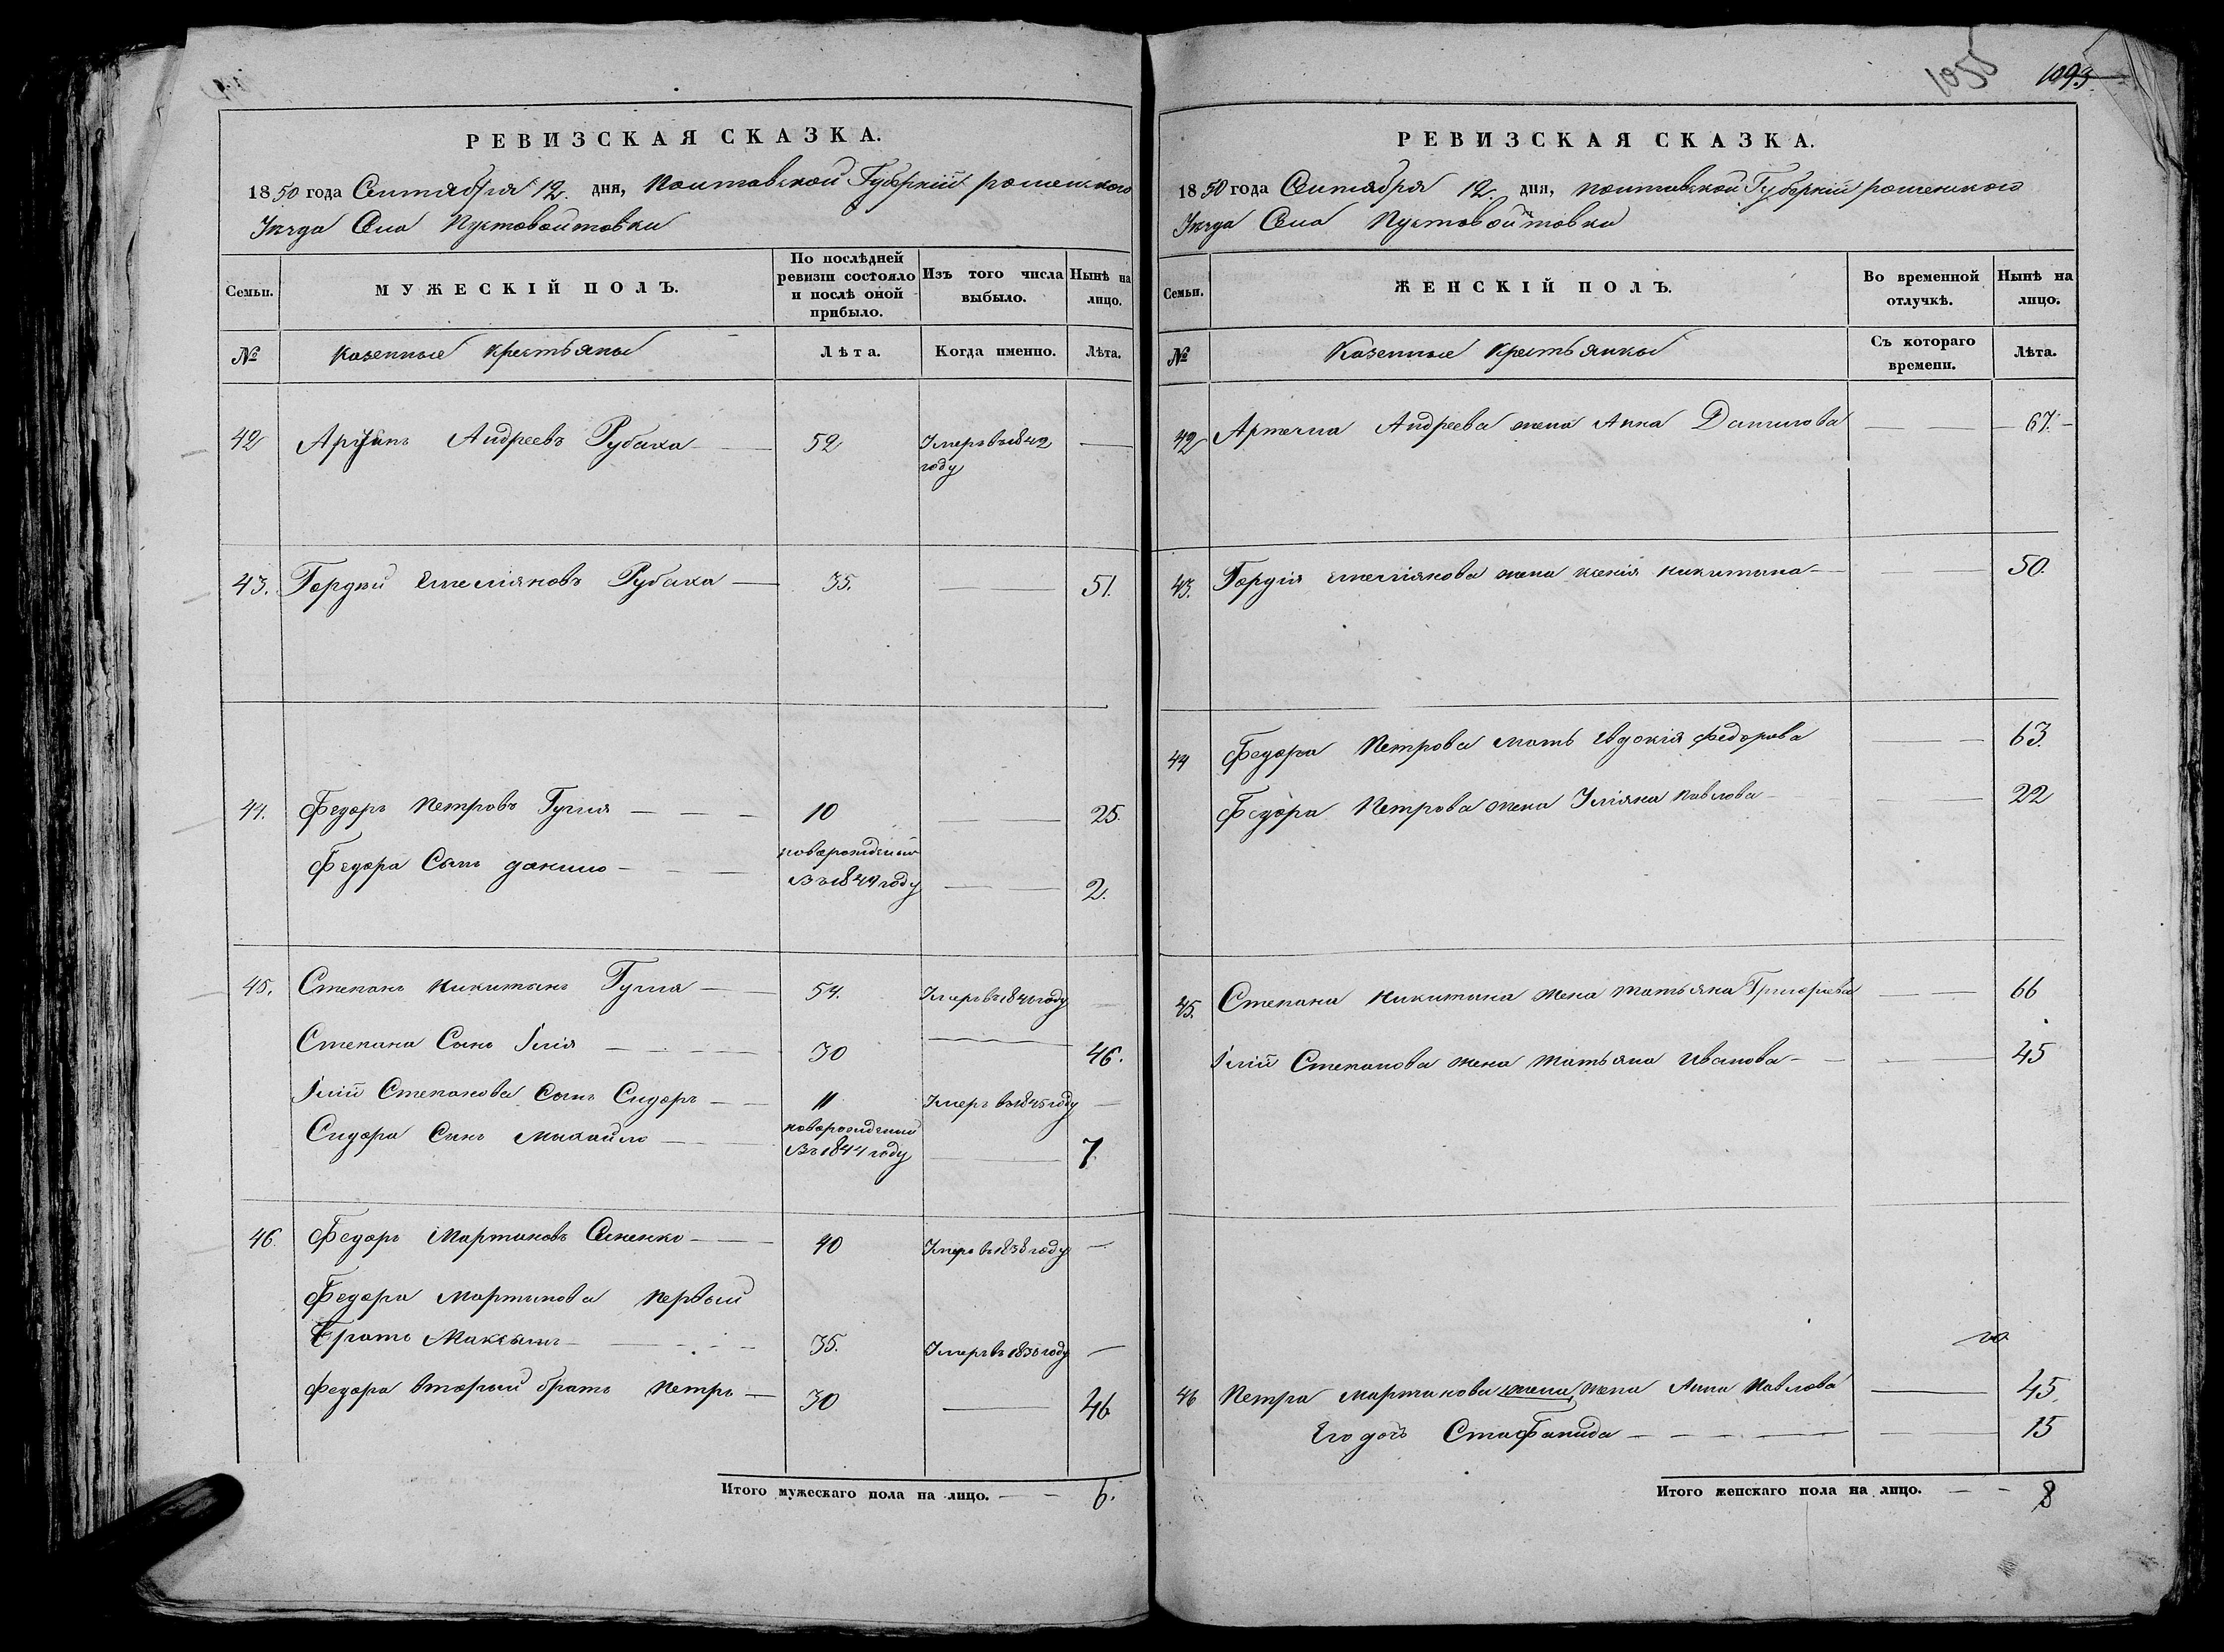 РЕВИЗСКАЯ СКАЗКА.
1850 года Сентября 12. дня, Полтавской Губерніи роменского
Уезда Села Пустовойтовки
Семьи.
МУЖЕСКІЙ ПОЛЪ.
По послѣдней ревизіи состояло и послѣ оной прибыло.
Изъ того числа выбыло.
Нынѣ на лицо.
№
Казенные крестьяны
Лѣта.
Когда именно.
Лѣта.
42 Андреевъ Рубаха 52 Умеръ в 1842
году
43. Гордѣй Емеліяновъ Рубаха 35. 51.
44. Федоръ Петровъ Гугля 10 25.
новорожденый
Федора Сынъ данило въ 1849 году 2.
45. Степанъ Никитинъ Гугля 54. Умеръ в 1846 году
Степана Сынъ Илія 30 46.
Иліи Степанова Сынъ Сидоръ 11 Умеръ в 1845 году
новорожденый
Сидора Сынъ Михайло въ 1844 году 7
46. Федоръ Мартиновъ Сененко 40 Умеръ в 1838 году
Федора Мартинова Первый
братъ Максимъ 35. Умеръ в 1836 году
Федора вторый братъ Петръ 30 46
Итого мужескаго пола на лицо. 6.
1055 1093
РЕВИЗСКАЯ СКАЗКА.
1850 года Сентября 12 дня, Полтавской Губерніи роменского
Уезда Села Пустовойтовки
Семьи.
ЖЕНСКІЙ ПОЛЪ.
Во временной отлучкѣ.
Нынѣ на лицо.
№
Казенные Крестьянки
Съ котораго времени.
Лѣта.
42 Артема Андреева жена Анна Данилова 67.
43. Гордія Емеліянова жена ксенія никитина 50.
44 Федора Петрова мать Евдокія федорова 63.
Федора Петрова жена Уліяна Павлова 22
45. Степана Никитина жена татьяна Григорьева 66
Иліи Степанова жена татьяна Иванова 45
46 Петра мартинова жена, жена Анна Павлова 45.
Его дочь Стефанида 15
Итого женскаго пола на лицо. 8